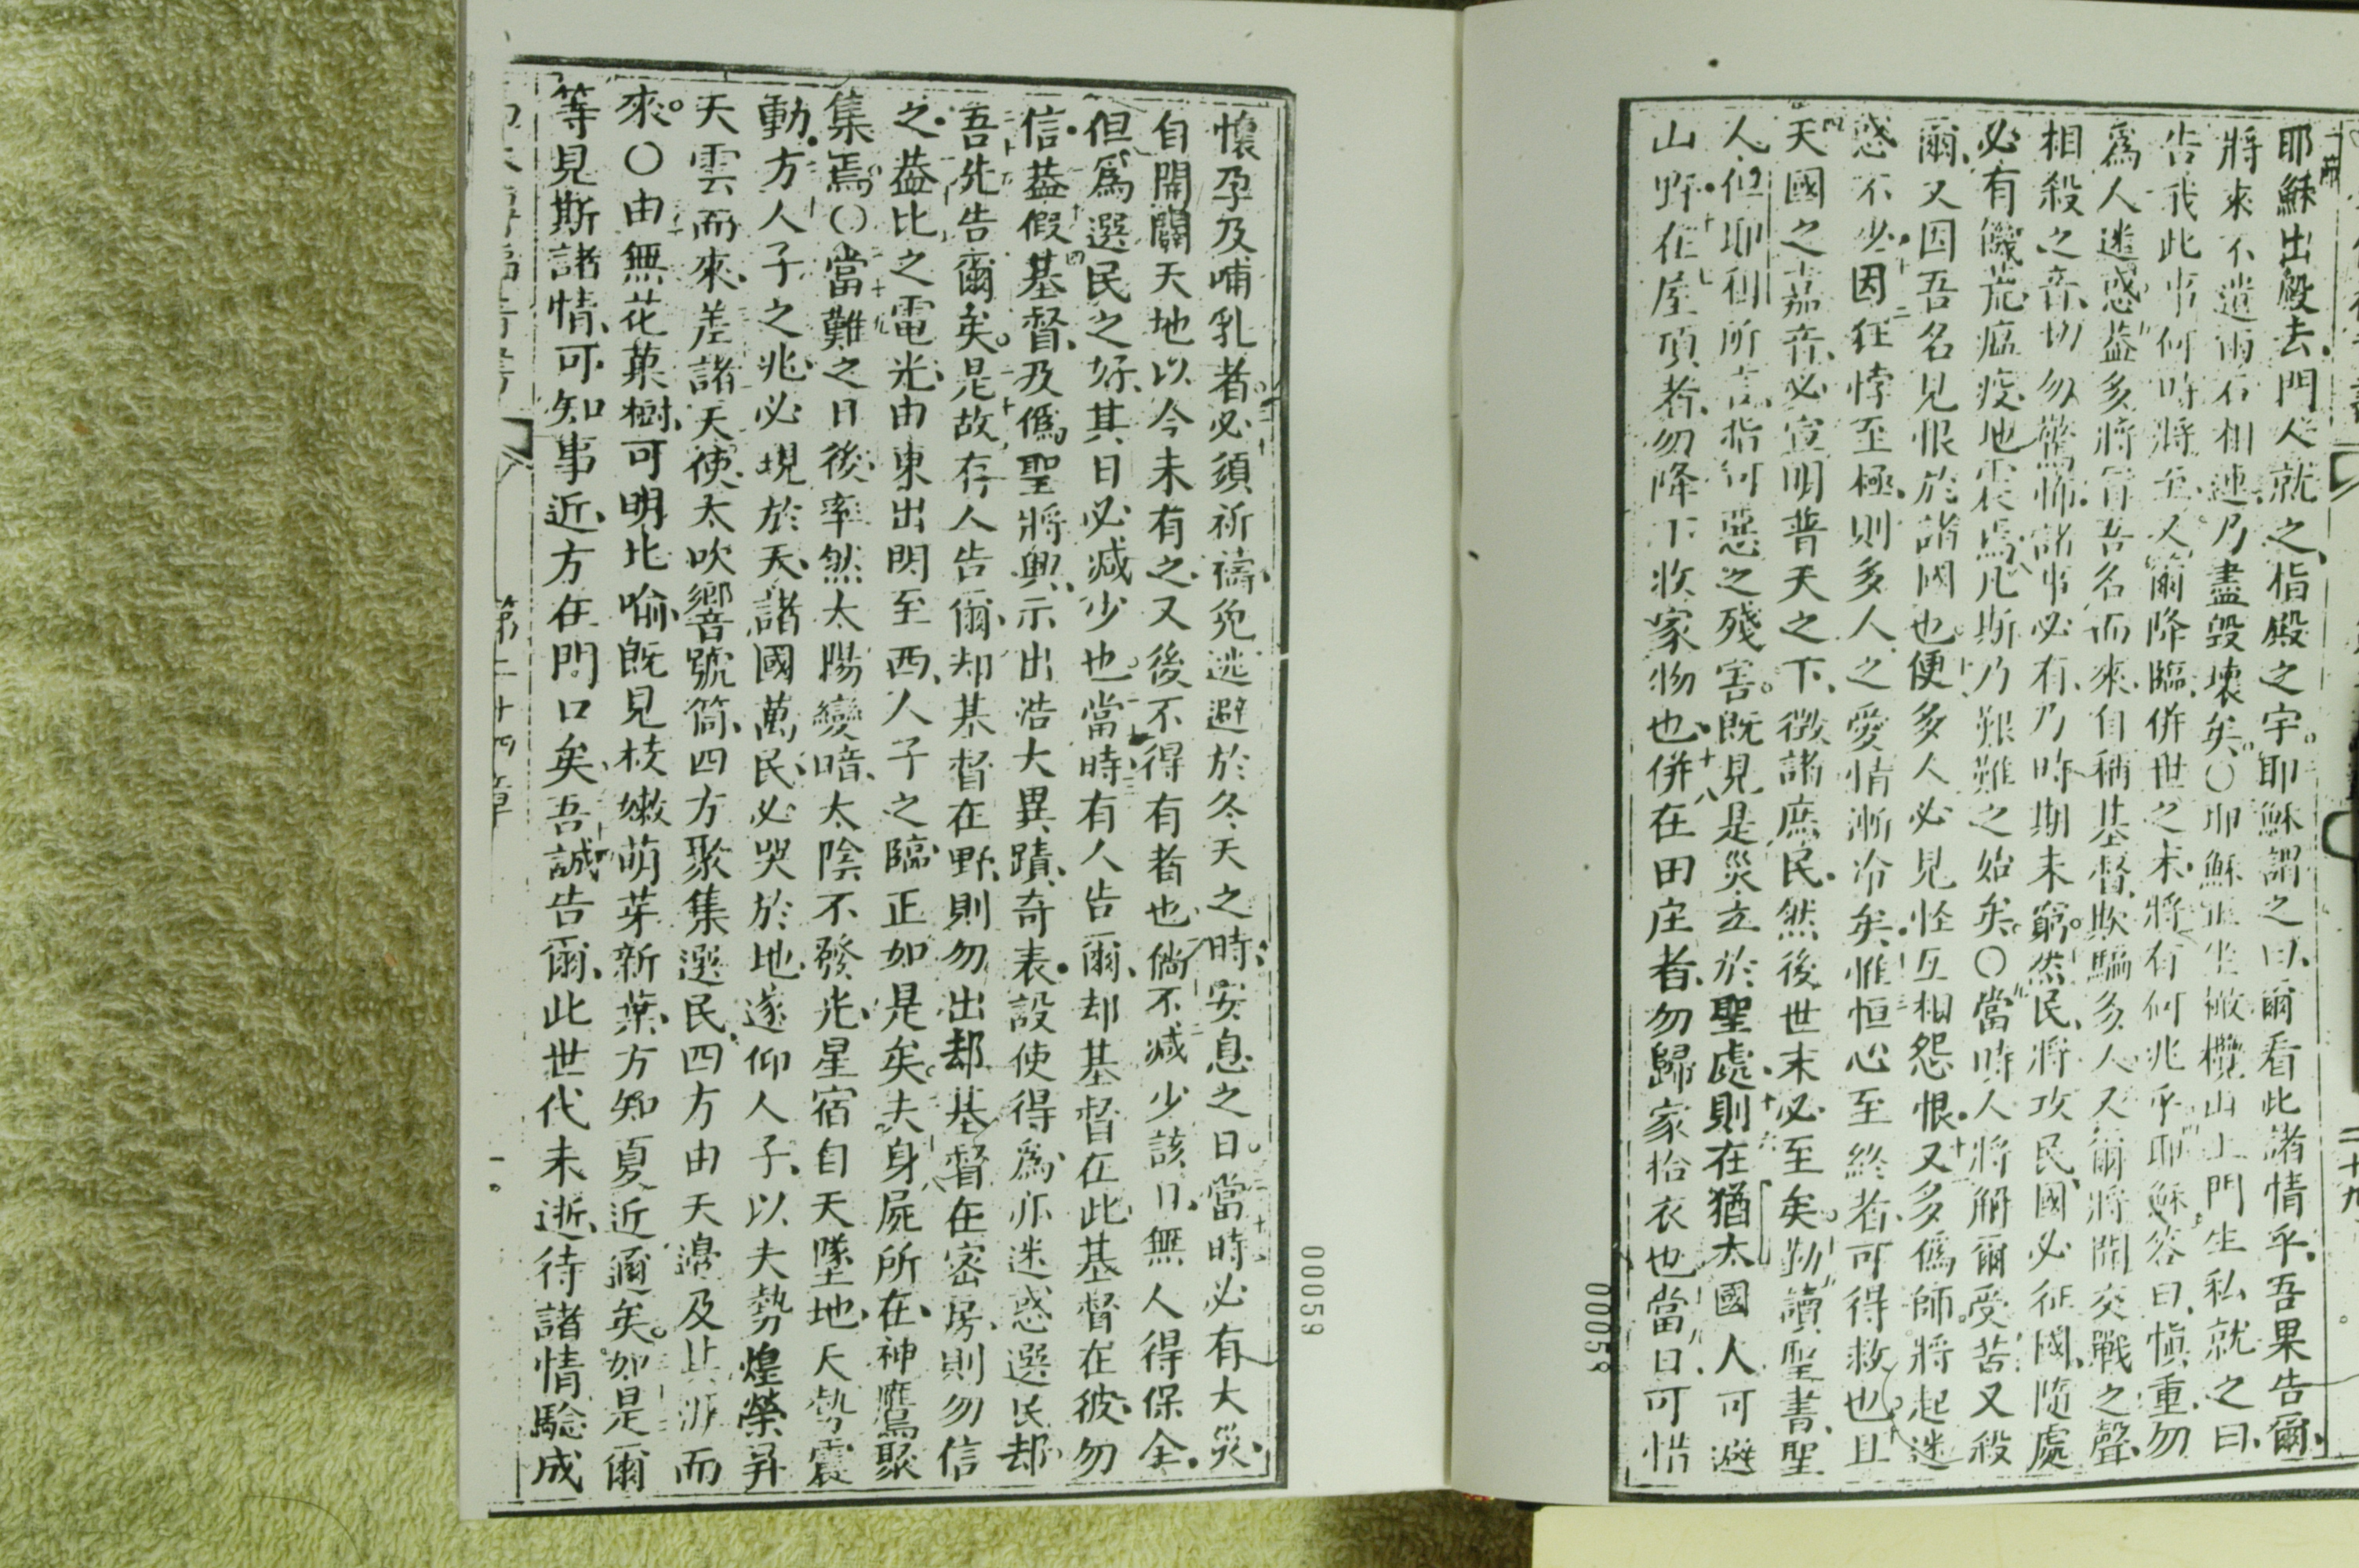 耶穌出殿去、門人就之、指殿之宇。耶穌謂之曰、爾看此諸情乎、吾果告爾、
將來不遺兩石相連、乃盡毀壞矣。〇耶穌正坐橄欖山上門生私就之曰、
告我此事何時將至、又爾降臨、併世之末、將有何兆乎耶穌答曰、愼重、勿
爲人迷惑。葢多將冒吾名而來、自稱基督、欺騙多人、又爾將聞交戰之聲、
相殺之音、切勿驚怖、諸事必有、乃時期未窮。然民、將攻民、國必征國、隨處
必有饑荒、瘟疫、地震焉、凡斯乃艱難之始矣。〇當時人將解爾受苦、又殺
爾、又因吾名見恨於諸國也便多人必見怪互相怨恨、又多僞師、將起迷
惑不少、因狂悖至極、則多人之愛情漸冷矣、惟恒心至終者、可得救也且
天國之嘉音、必宣明普天之下、徵諸庶民、然後世末必至矣。勑讀聖書、聖
人但耶利所言指何惡之殘害。旣見是災立於聖處、則在猶太國人可避
山野在屋頂者、勿降下收家物也、併在田庄者、勿歸家拾衣也當日可惜
00058
00059
懷孕及哺乳者。必須祈禱、免逃避於冬天之時、安息之日。當時必有大災、
自開闢天地以今未有之、又後不得有者也倘不減少該日無人得保全、
但爲選民之好、其日必減少也。當時有人告爾、却基督在此、基督在彼、勿
信、葢假基督、及僞聖將興、示出浩大異蹟、奇表、設使得爲、亦迷惑選民却
吾先告爾矣。是故存人告爾、却基督在野、則勿出却基督在密房、則勿信
之、葢比之電光、由東出閃至西、人子之臨、正如是矣。夫身屍所在、神鷹聚
集焉。〇當難之日後、率然太陽變暗、太陰不發光、星宿自天墜地、天勢震
動、方人子之兆、必現於天、諸國萬民、必哭於地、遂仰人子、以夫勢煌榮昇
天雲而來、差諸天使、太吹響號筒、四方聚集選民、四方由天邊及其涯而
來。〇由無花菓樹、可明比喻、旣見枝嫩萌芽新葉、方知夏近邇矣。如是爾
等見斯諸情、可知事近、方在門口矣、吾誠告爾、此世代未逝、待諸情騐成
第二十四章